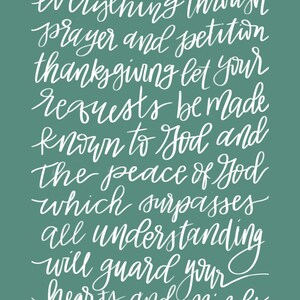 everything through
prayer and petition
thanksgiving let your
requests be made
known to God and
the peace of God
which surpasses
all understanding
will guard your
hearts and minds